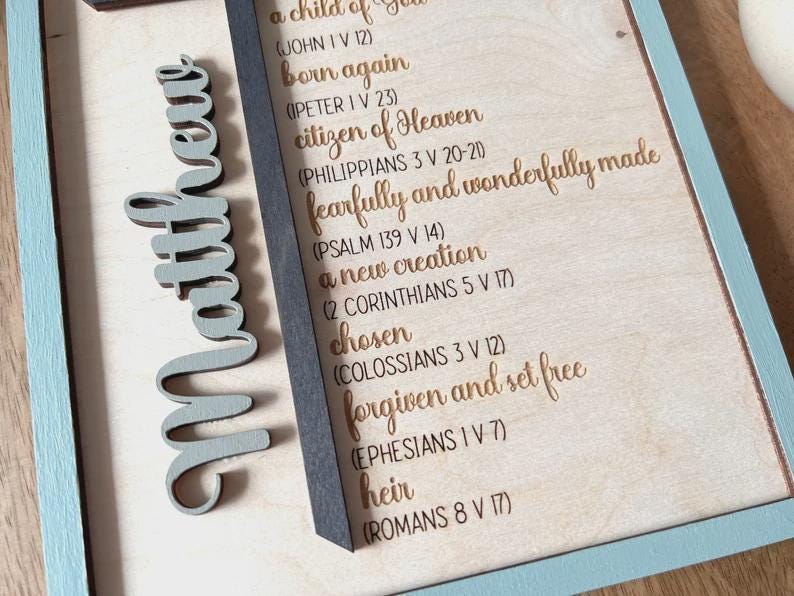 Matthew
a child of God
(JOHN 1 V 12)
born again
(1PETER 1 V 23)
citizen of Heaven
(PHILIPPIANS 3 V 20-21)
fearfully and wonderfully made
(PSALM 139 V 14)
a new creation
(2 CORINTHIANS 5 V 17)
chosen
(COLOSSIANS 3 V 12)
forgiven and set free
(EPHESIANS 1 V 7)
heir
(ROMANS 8 V 17)